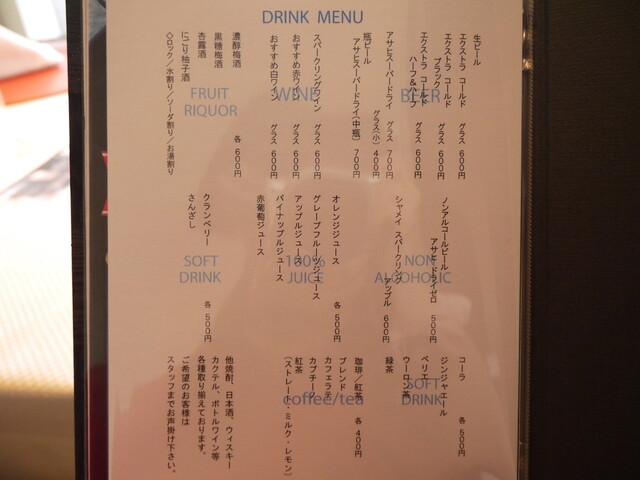 DRINK MENU
BEER
生ビール
エクストラ コールド グラス 600円
エクストラ コールド
ブラック グラス 600円
エクストラ コールド
ハーフ&ハーフ グラス 600円
アサヒスーパードライ グラス 700円
グラス(小) 400円
瓶ビール
アサヒスーパードライ(中瓶) 700円
WINE
スパークリングワイン グラス 600円
おすすめ赤ワイン グラス 600円
おすすめ白ワイン グラス 600円
FRUIT
RIQUOR
濃醇梅酒 各 600円
黒糖梅酒
杏露酒
にごり柚子酒
◇ロック/水割り/ソーダ割り/お湯割り
NON
ALCOHOLIC
ノンアルコールビール
アサヒ ドライゼロ 500円
シャメイ スパークリング
アップル 600円
100%
JUICE
オレンジジュース 各 500円
グレープフルーツジュース
アップルジュース
パイナップルジュース
赤葡萄ジュース
SOFT
DRINK
クランベリー 各 500円
さんざし
SOFT
DRINK
コーラ 各 500円
ジンジャエール
ペリエ
ウーロン茶
緑茶
coffee/tea
珈琲/紅茶 各 400円
ブレンド
カフェラテ
カプチーノ
紅茶
(ストレート・ミルク・レモン)
他焼酎、日本酒、ウィスキー
カクテル、ボトルワイン等
各種取り揃えております。
ご希望のお客様は
スタッフまでお声掛け下さい。